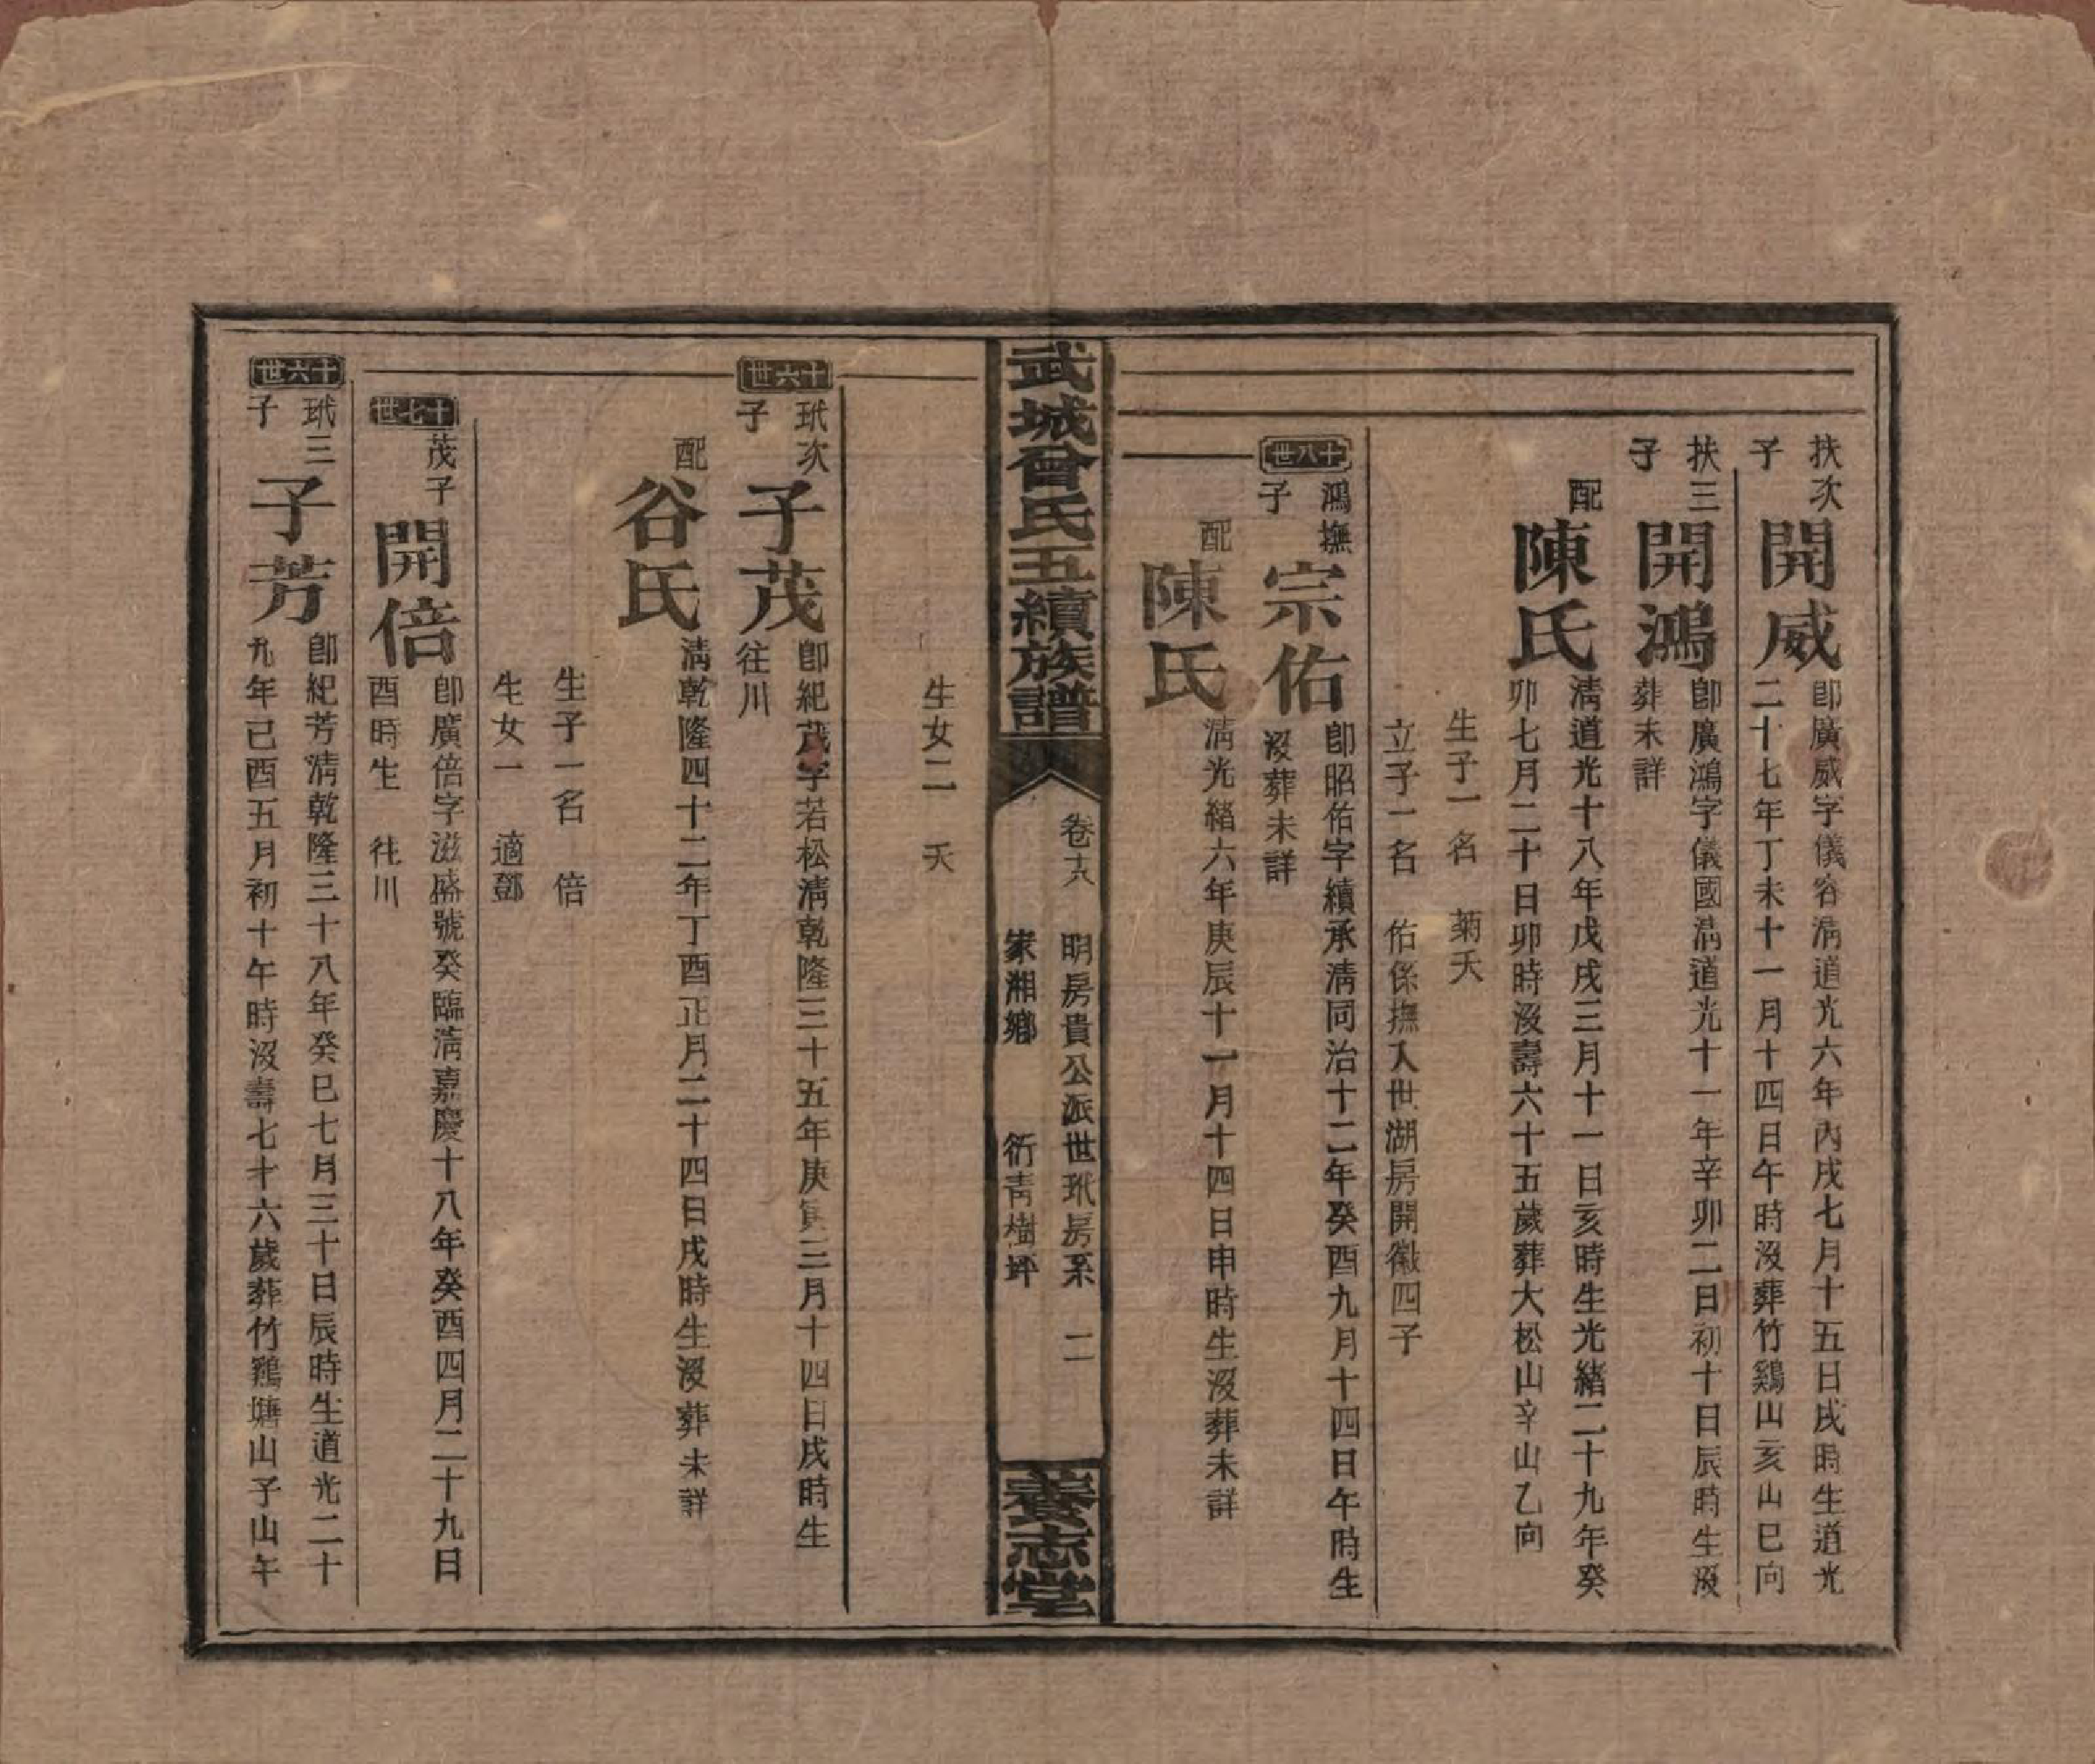 扶次子
開威
卽廣威字儀容淸道光六年丙戌七月十五日戌時生道光
二十七年丁未十一月十四日午時沒葬竹鷄山亥山巳向
扶三子
開鴻
卽廣鴻字儀國淸道光十一年辛卯二日初十日辰時生沒
葬未詳
配
陳氏
淸道光十八年戊戌三月十一日亥時生光緖二十九年癸
卯七月二十日卯時沒壽六十五歲葬大松山辛山乙向
生子一名　菊夭
立子一名　佑係撫入世湖房開徽四子
十八世
鴻撫子
宗佑
卽昭佑字續承淸同治十二年癸酉九月十四日午時生
沒葬未詳
配
陳氏
淸光緖六年庚辰十一月十四日申時生沒葬未詳
武城曾氏五續族譜
卷十六
明房貴公派世玳房系　二
家湘鄉　衍靑樹坪
養志堂
生女二　夭
十六世
玳次子
子茂
卽紀茂字若松淸乾隆三十五年庚寅三月十四日戌時生
往川
配
谷氏
淸乾隆四十二年丁酉正月二十四日戌時生沒葬未詳
生子一名　倍
生女一　適鄧
十七世
茂子
開倍
卽廣倍字滋盛號癸臨淸嘉慶十八年癸酉四月二十九日
酉時生　往川
十六世
玳三子
子芳
卽紀芳淸乾隆三十八年癸巳七月三十日辰時生道光二十
九年己酉五月初十午時沒壽七十六歲葬竹鷄塘山子山午